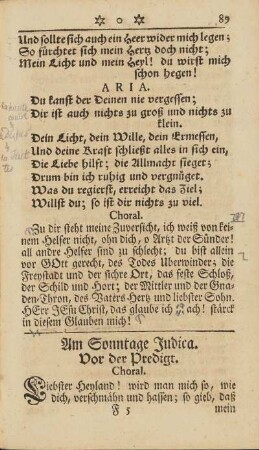 ✡ o ✡ 89
Und sollte sich auch ein Heer wider mich legen;
So fürchtet sich mein Hertz doch nicht;
Mein Licht und mein Heyl! du wirst mich
schon hegen!
ARIA.
Du kanst der Deinen nie vergessen;
Dir ist auch nichts zu groß und nichts zu
klein.
Dein Licht, dein Wille, dein Ermessen,
Und deine Kraft schließt alles in sich ein,
Die Liebe hilft; die Allmacht sieget;
Drum bin ich ruhig und vergnüget.
Was du regierst, erreicht das Ziel;
Willst du; so ist dir nichts zu viel.
Choral.
Zu dir steht meine Zuversicht, ich weiß von kei-
nem Helfer nicht, ohn dich, o Artzt der Sünder!
all andre Helfer sind zu schlecht; du bist allein
vor GOtt gerecht, des Todes Uberwinder; die
Freystadt und der sichre Ort, das feste Schloß,
der Schild und Hort; der Mittler und der Gna-
den-Thron, des Vaters Hertz und liebster Sohn.
HErr JEsu Christ, das glaube ich ach! stärck
in diesem Glauben mich!
Am Sonntage Judica.
Vor der Predigt.
Choral.
Liebster Heyland! wird man mich so, wie
dich, verschmähn und hassen; so gieb, daß
F 5 mein